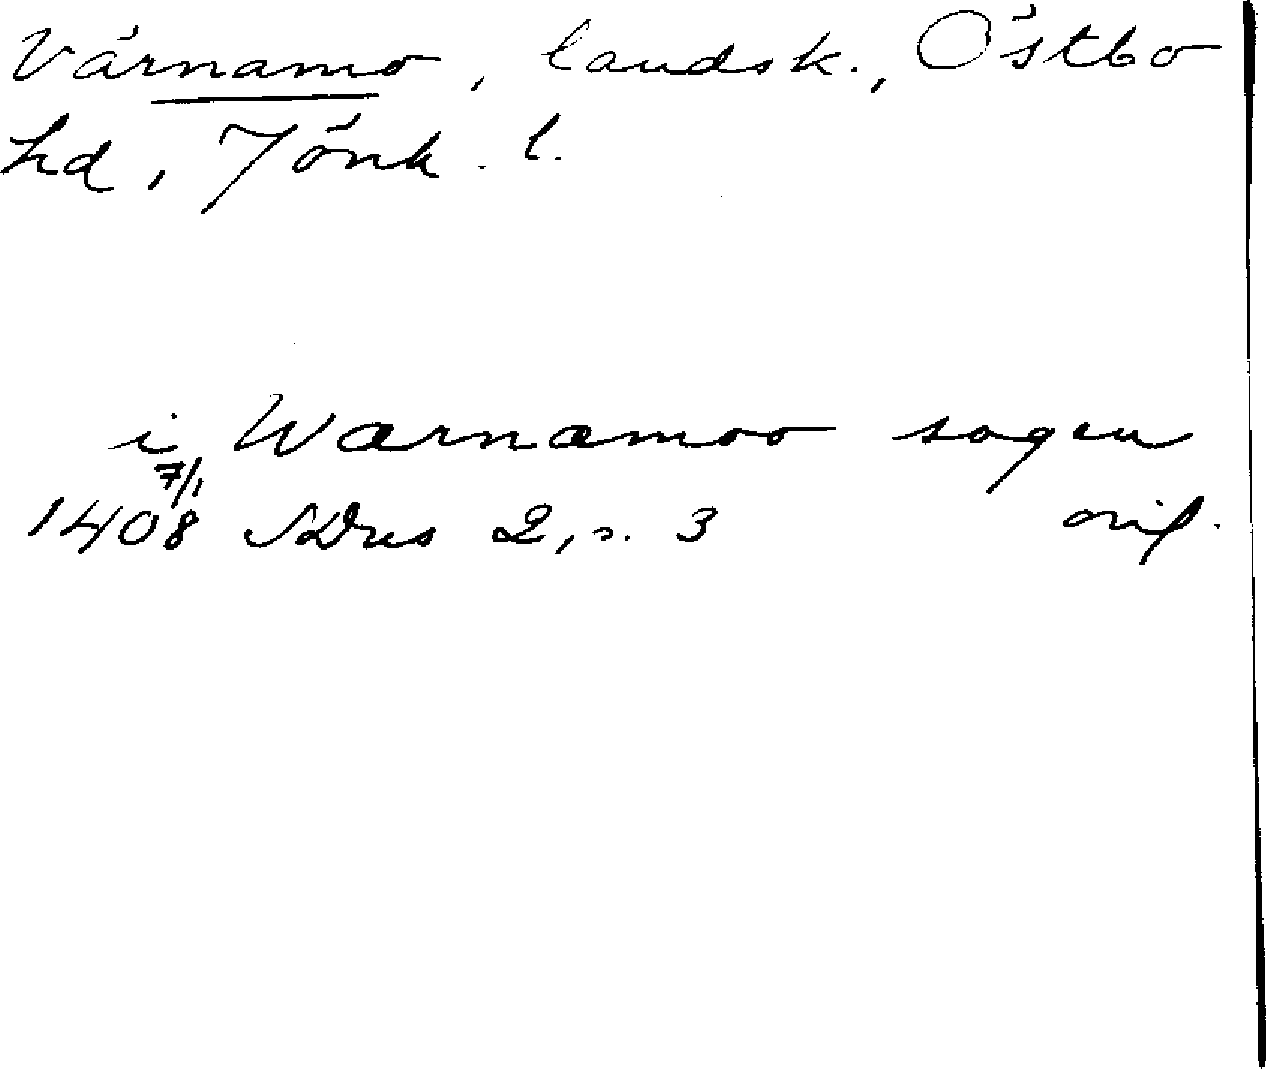 Värnamo, landsk., Östbo
hd, Jönk. l.
i Wærnæmoo sogen
7/1
1408 SDns 2, s. 3 orig.